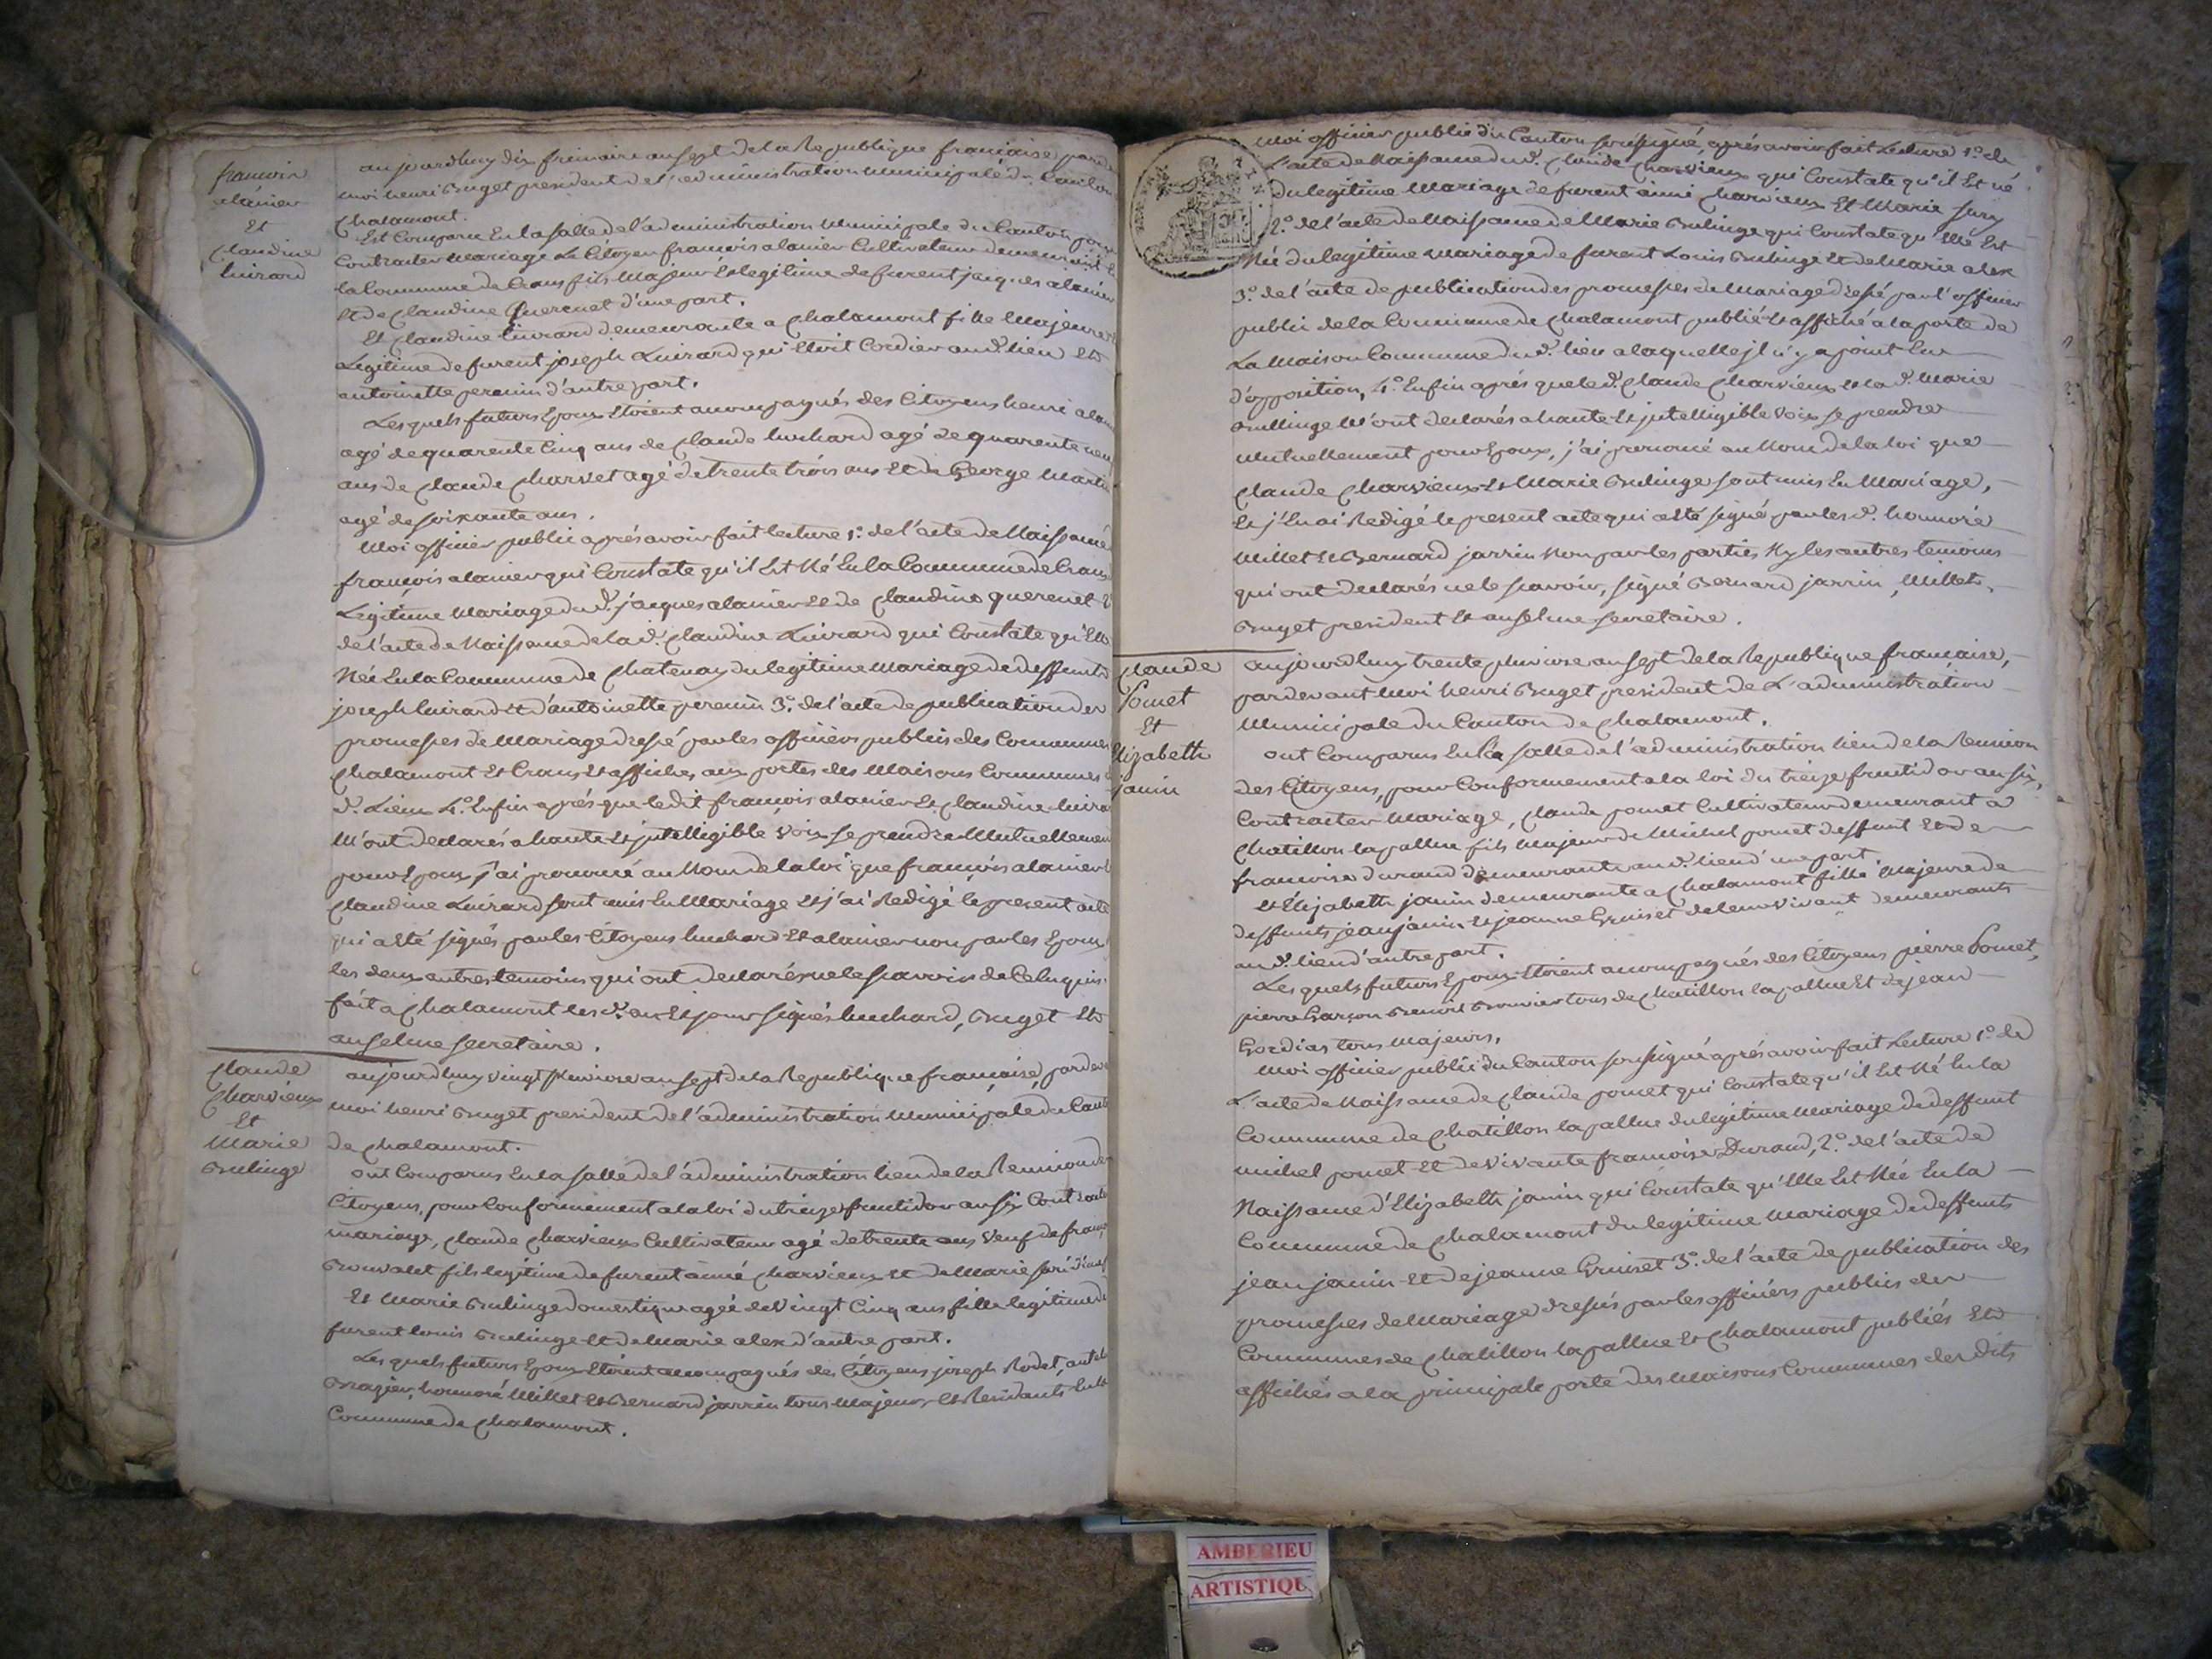 francois
alanier
Et
Claudine
luirard
aujourdhuy dix frimaire an sept de la Republique francaise, parde
moi henri Buget president de l'administration Municipale du Canton
Chalamont.
Est Comparu En la salle de l'administration Municipale du Canton pour
Contracter Mariage Le Citoyen francois alanier Cultivateur demeurant
la Commune de Crans fils Majeur Et legitime de furent jacques alanier
Et de Claudine Querenet d'une part.
Et Claudine luirard demeurante a Chalamont fille Majeure
Legitime de furent joseph Luirard qui Etoit Cordier aud. lieu Et
antoinette perenin d'autre part.
Lesquels futurs Epoux Etoient accompagnés des Citoyens henri alan
agé de quarente Cinq ans de Claude luchard agé de quarente neu
ans de Claude Charvet agé de trente trois ans Et de George Marti
agé de soixante ans.
Moi officier public aprés avoir fait lecture 1.° de l'acte de Naissance
francois alanier qui Constate qu'il Est Né En la Commune de Crans
Legitime Mariage dud. jacques alanier Et de Claudine querenet 2
de l'acte de Naissance de lad. Claudine Luirard qui Constate qu'Elle
Née En la Commune de Chatenay du legitime Mariage de deffunts
joseph luirard Et d'antoinette perenin 3.° de l'acte de publication des
promesses de Mariage dressé par les officiers publics des Communes
Chalamont Et Crans Et affichés aux portes des Maisons Communes
d. Lieux 4.° Enfin aprés que ledit francois alanier Et Claudine luira
M'ont declarés a haute Et jntelligible Voix se prendre Mutuellemen
pour Epoux j'ai prononcé au Nom de la loi que francois alanier
Claudine Luirard sont unis En Mariage Et j'ai Redigé le present acte
qui a Eté signés par les Citoyens luchard Et alanier non par les Epoux
les deux autres temoins qui ont declarés ne le scavoir de Ce Enquis
fait a Chalamont les d. an Et jour signés luchard, Buget Et
anselme secretaire.
Claude
Charvieux
Et
Marie
Bulinge
aujourdhuy vingt pluviose an sept de la Republique francaise, pardev
moi henri Buget president de l'administration Municipale du Cant
de Chalamont.
ont Comparus En la salle de l'administration lieu de la Reunion des
Citoyens, pour Conformement a la loi du treize fructidor an six Contracter
mariage, Claude Charvieux Cultivateur agé de trente ans Veuf de franc
Brouvalet fils legitime de furent aimé Charvieux Et de Marie
Et Marie Bulinge domestique agée de Vingt Cinq ans fille legitime de
furent louis Bulinge Et de Marie alex d'autre part.
Lesquels futurs Epoux Etoient accompagnés des Citoyens joseph Rodet,
Brazier, honnoré Millet Et Bernard jarrin tous Majeurs Et Residants En la
Commune de Chalamont.
moi officier public du Canton soussigné, aprés avoir fait Lecture 1.° de
L'acte de Naissance dud. Claude Charvieux qui Constate qu'il Est né
du legitime Mariage de furent aimé Charvieux Et Marie
2.° de l'acte de Naissance de Marie Bulinge qui Constate qu'Elle Est
Née du legitime Mariage de furent Louis Bulinge Et de Marie alex
3.° de l'acte de publication des promesses de Mariage dressé par l'officier
public de la Commune de Chalamont publié Et affiché a la porte de
La Maison Commune dud. lieu a laquelle jl n'y a point Eu
d'opposition, 4.° Enfin aprés que led. Claude Charvieux Et lad. Marie
Bullinge M'ont declarés a haute Et jntelligible Voix se prendre
Mutuellement pour Epoux, j'ai prononcé au Nom de la loi que
Claude Charvieux Et Marie Bulinge sont unis En Mariage,
Et j'En ai Redigé le present acte qui a Eté signé par les d. honnoré
Millet Et Bernard jarrin Non par les parties Ny les autres temoins
qui ont declarés ne le scavoir, signé Bernard jarrin, Millet,
Buget president Et anselme secretaire.
Claude
Pomet
Et
Elizabeth
janin
aujourdhuy trente pluviose an sept de la Republique francaise,
pardevant Moi henri Buget president de L'administration
Municipale du Canton de Chalamont.
ont Comparus En la salle de l'administration lieu de la Reunion
des Citoyens, pour Conformement a la loi du treize fructidor an six,
Contracter Mariage, Claude pomet Cultivateur demeurant a
Chatillon lapallue fils Majeur de Michel pomet deffunt Et de
francoise durand demeurante aud. lieu d'une part.
Et Elizabeth janin demeurante a Chalamont fille Majeure de
deffunts jean janin Et jeanne Gruiset de leur Vivant demeurants
aud. lieu d'autre part.
Lesquels futurs Epoux Etoient accompagnés des Citoyens pierre Pomet,
pierre Garçon Benoit Bouvier tous de Chatillon lapallue Et de jean
Gordias tous Majeurs.
Moi officier public du Canton soussigné aprés avoir fait Lecture 1.° de
L'acte de Naissance de Claude pomet qui Constate qu'il Est Né En la
Commune de Chatillon lapallue du legitime Mariage de deffunt
michel pomet Et de Vivante francoise Durand, 2.° de l'acte de
Naissance d'Elizabeth janin qui Constate qu'Elle Est Née En la
Commune de Chalamont du legitime Mariage de deffunts
jean janin Et de jeanne Gruiset 3.° de l'acte de publication des
promesses de Mariage dressés par les officiers publics des
Communes de Chatillon lapallue Et Chalamont publiés Et
affichés a la principale porte des Maisons Communes des dits
AMBERIEU
ARTISTIQU